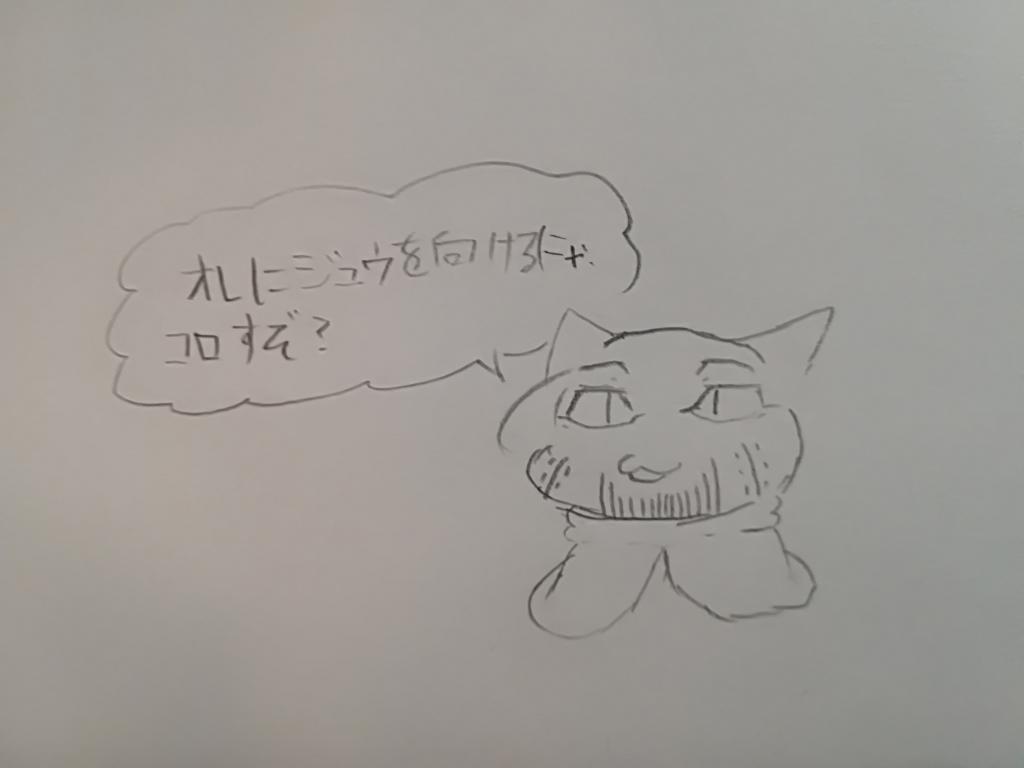 オレにジュウを向けるにゃ.
コロすぞ?